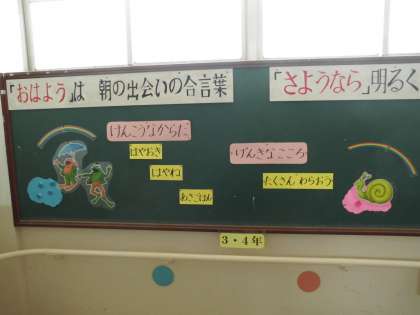 「おはよう」は 朝の出会いの合言葉
「さようなら」明るく
げんこうなからだ
はやおき
はやね
あさごはん
げんきなこころ
たくさん わらおう
3・4年